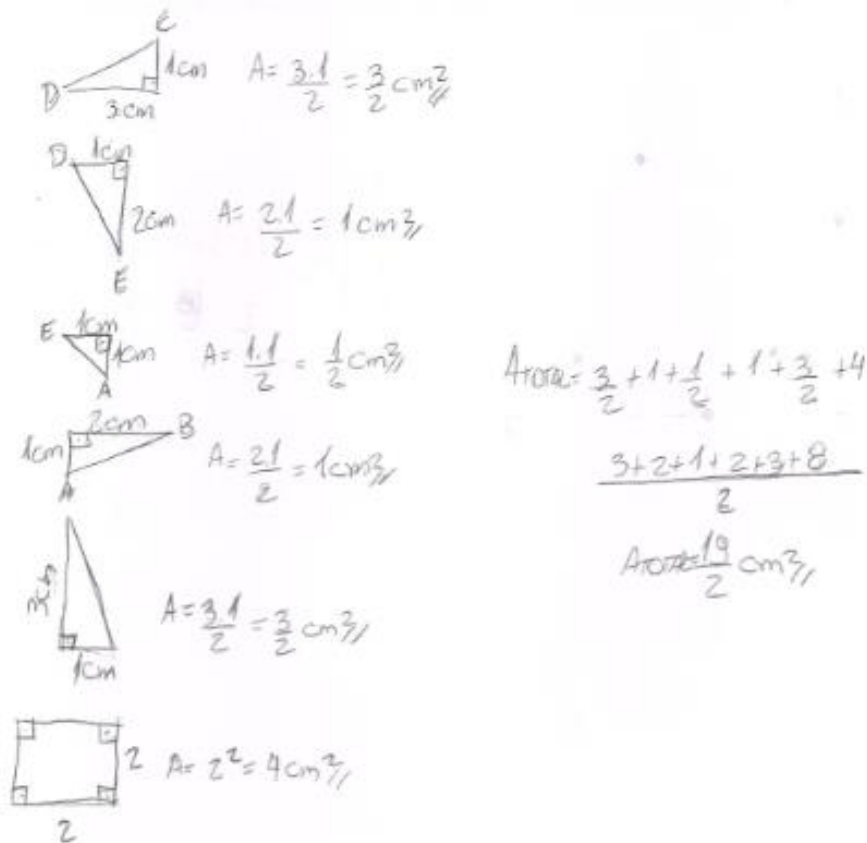 C
1cm
D
3cm
A = 3.1/2 = 3/2 cm²//
D 1cm
2cm
E
A = 2.1/2 = 1cm²//
E 1cm
1cm
A
A = 1.1/2 = 1/2 cm²//
2cm B
1cm
A
A = 2.1/2 = 1cm²//
1cm
A = 3.1/2 = 3/2 cm²//
2
2
A = 2² = 4cm²//
ATOTAL = 3/2 + 1 + 1/2 + 1 + 3/2 + 4
3+2+1+2+3+8/2
ATOTAL = 19/2 cm²//